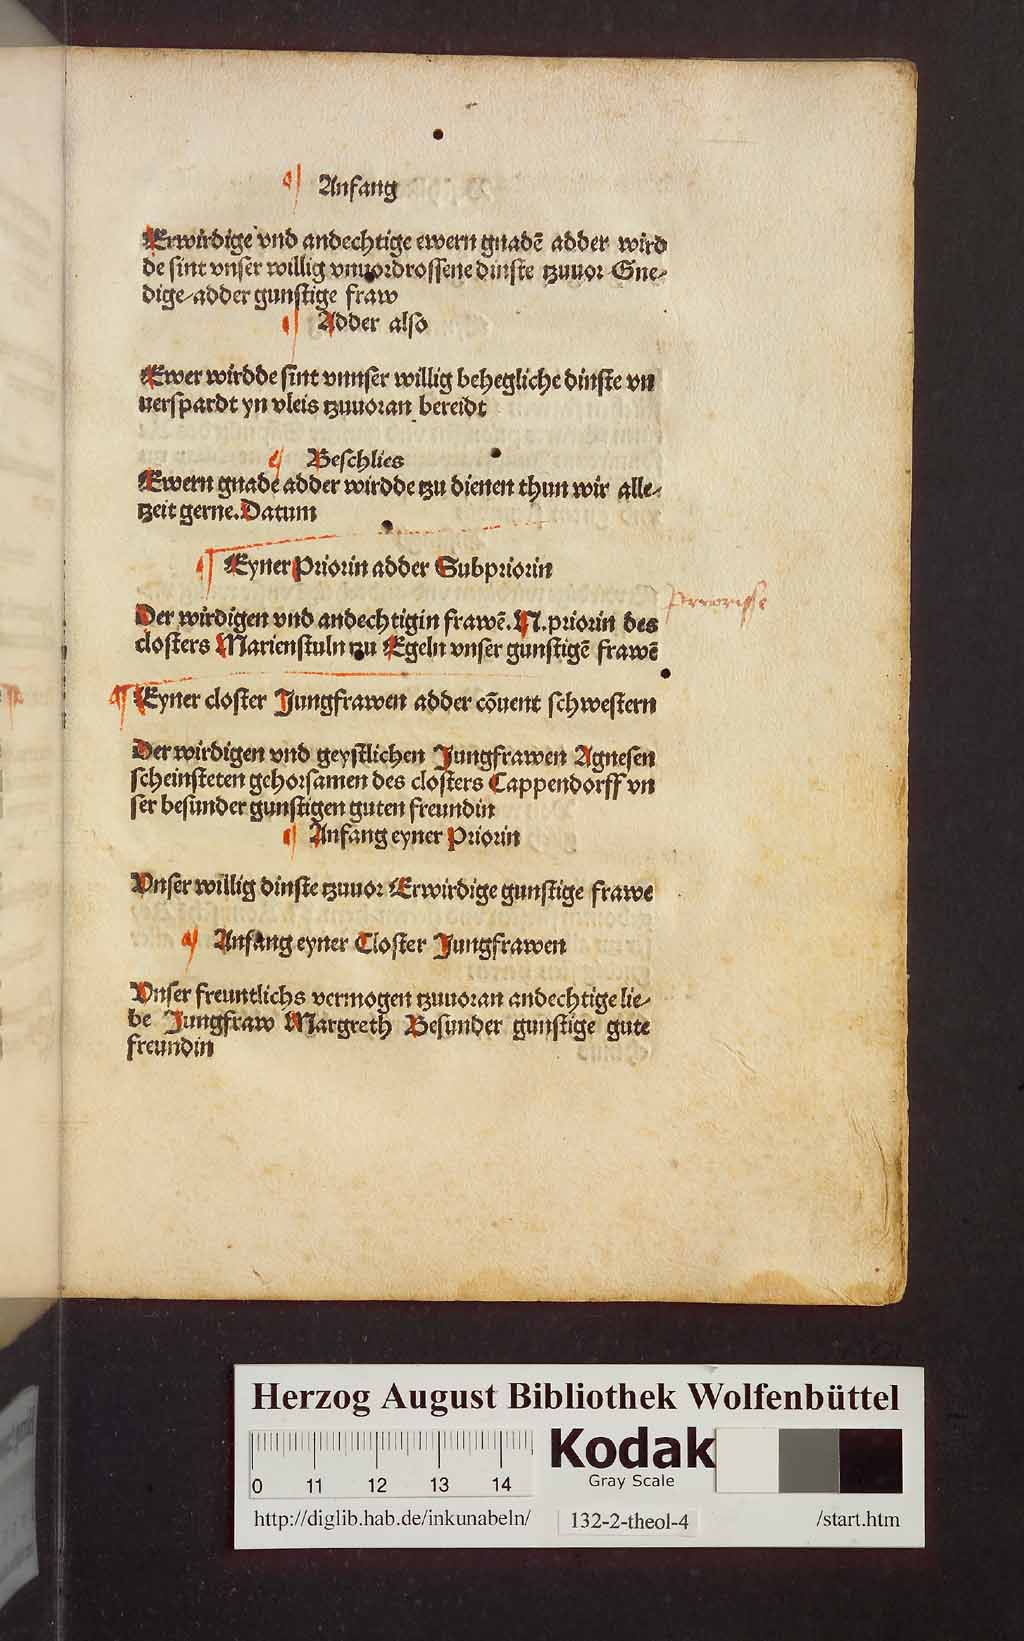 Anfang
Erwirdige vnd andechtige ewern gnadē adder wird
de sint vnser willig vnuordrossene dinste tzuuor Gne⸗
dige/adder gunstige fraw
Adder also
Ewer wirdde sint vnnser willig behegliche dinste vn
uerspardt yn vleis tzuuoran bereidt
Beschlies
Ewern gnade adder wirdde tzu dienen thun wir alle⸗
tzeit gerne. Datum
Eyner Priorin adder Subpriorin
Der wirdigen vnd andechtigin frawē. N. priorin des
closters Marienstuln tzu Egeln vnser gunstigē frawē
Eyner closter Jungfrawen adder cōuent schwestern
Der wirdigen vnd geystlichen Jungfrawen Agnesen
scheinsteten gehorsamen des closters Cappendorff vn
ser besunder gunstigen guten freundin
Anfang eyner Priorin
Vnser willig dinste tzuuor Erwirdige gunstige frawe
Anfang eyner Closter Jungfrawen
Vnser freuntlichs vermogen tzuuoran andechtige lie⸗
be Jungfraw Margreth Besunder gunstige gute
freundin
Herzog August Bibliothek Wolfenbüttel
0 11 12 13 14
Kodak
Gray Scale
http://diglib.hab.de/inkunabeln/ 132-2-theol-4 /start.htm